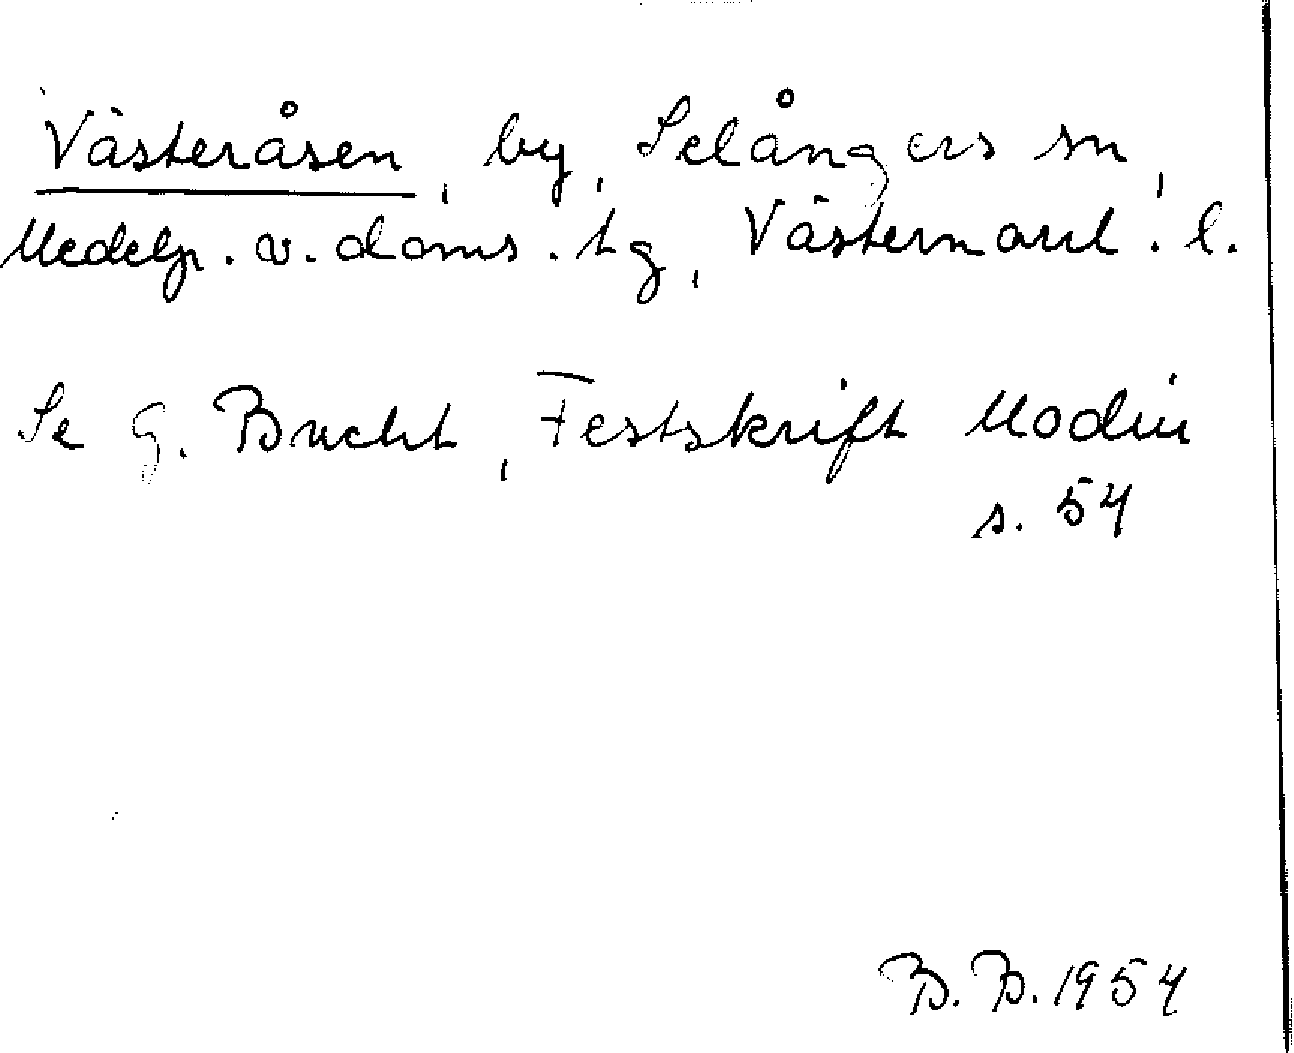 Västeråsen, by, Selångers sn,
Medelp. v. doms. tg, Västernorrl. l.
Se G. Bucht, Festskrift Modin
s. 54
B. B. 1954